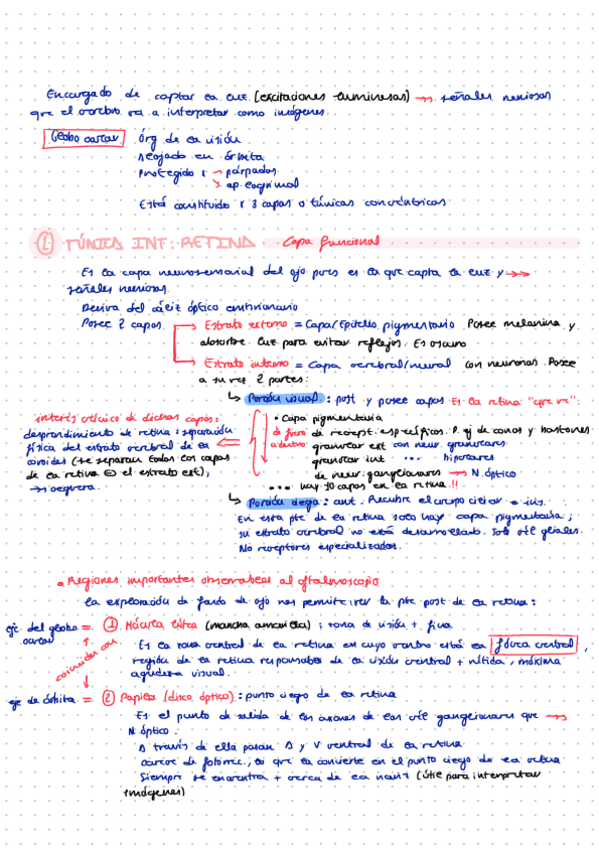 Encargado de captar la luz (excitaciones luminosas) → señales nerviosas
que el cerebro va a interpretar como imágenes.
Globo ocular órg de la visión
Alojado en órbita
Protegido x → párpados
↘ ap. lagrimal
Está constituido x 3 capas o túnicas concéntricas
① TÚNICA INT: RETINA Capa funcional
Es la capa neurosensorial del ojo pues es la que capta la luz y →→
señales nerviosas.
Deriva del cáliz óptico embrionario
Posee 2 capas
Estrato externo = Capa/Epitelio pigmentario Posee melanina y
absorbe luz para evitar reflejos. Es oscuro
Estrato interno = Capa cerebral/neural con neuronas. Posee
a su vez 2 partes:
Porción visual: post y posee capas. Es la retina "que ve".
• Capa pigmentaria
de fuera a dentro
de recept. específicos. P. ej de conos y bastones
granular ext con neur. granulares
granular int ... bipolares
de neur. ganglionares → N. óptico
... hay 10 capas en la retina !!
interés clínico de dichas capas:
desprendimiento de retina: separación
física del estrato cerebral de la
coroides (se separan todas las capas
de la retina ⊖ el estrato ext),
→ ceguera.
Porción ciega: ant. Recubre el cuerpo ciliar e iris.
En esta pte de la retina solo hay capa pigmentaria;
su estrato cerebral no está desarrollado. Solo cél gliales.
No receptores especializados.
• Regiones importantes observables al oftalmoscopio
La exploración de fondo de ojo nos permite ver la pte post de la retina:
eje del globo ocular = ① Mácula lútea (mancha amarilla): zona de visión + fina
Es la zona central de la retina en cuyo centro está la fóvea central,
región de la retina responsable de la visión central + nítida, máxima
agudeza visual.
coinciden con
eje de órbita = ② Papila (disco óptico): punto ciego de la retina
Es el punto de salida de los axones de las cél ganglionares que →
N. óptico.
A través de ella pasan A y V central de la retina
carece de fotorrec., lo que la convierte en el punto ciego de la retina
Siempre se encuentra + cerca de la nariz (útil para interpretar
imágenes)